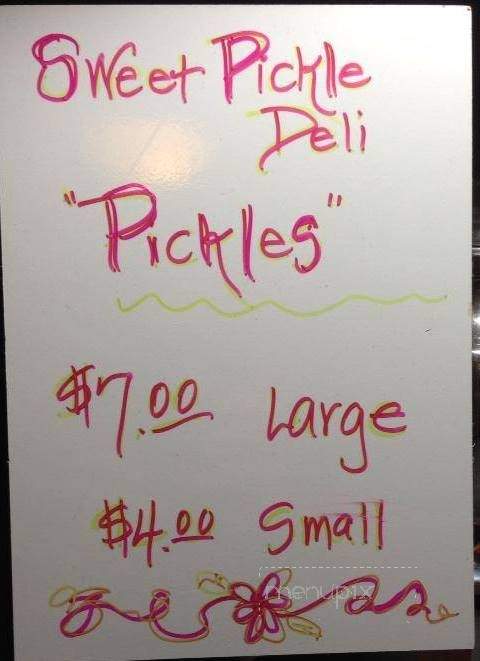 Sweet Pickle
Deli
"Pickles"
$7.00 Large
$4.00 Small
menupix